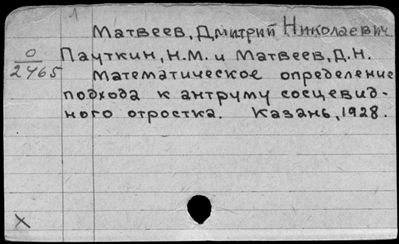 1
Матвеев, Дмитрий Николаевич
О
2465
Пауткин, Н.М. и Матвеев, Д.Н.
Математическое определение
подхода к антруму сосцевид-
ного отростка. Казань, 1928.
X